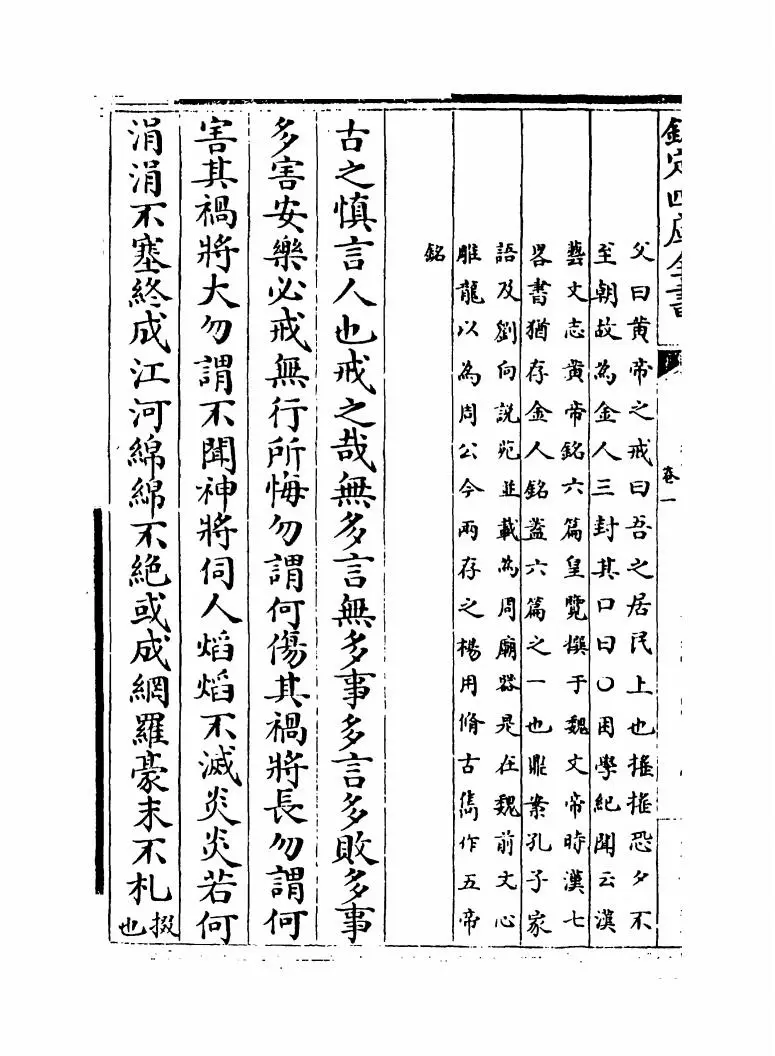 欽定四庫全書
卷一
父曰黄帝之戒曰吾之居民上也摇摇恐夕不
至朝故為金人三封其口曰〇困學紀聞云漢
藝文志黄帝銘六篇皇覽撰于魏文帝時漢七
畧書猶存金人銘葢六篇之一也鼎案孔子家
語及劉向説苑並載為周廟器是在魏前文心
雕龍以為周公今兩存之楊用脩古雋作五帝
銘
古之慎言人也戒之哉無多言無多事多言多敗多事
多害安樂必戒無行所悔勿謂何傷其禍將長勿謂何
害其禍將大勿謂不聞神將伺人焰焰不滅炎炎若何
涓涓不塞終成江河綿綿不絶或成網羅豪末不札掇也